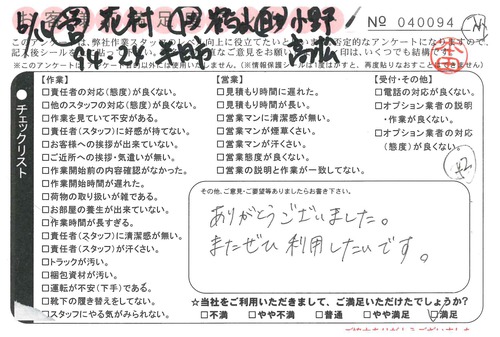 № 040094
このアンケートは、弊社作業スタッフの
否定的なアンケートになりますので、
いくつでも結構です。
チェックリスト
【作業】
□責任者の対応(態度)が良くない。
□他のスタッフの対応(態度)が良くない。
□作業を見ていて不安がある。
□責任者(スタッフ)に好感が持てない。
□お客様への挨拶が出来ていない。
□ご近所への挨拶・気遣いが無い。
□作業開始前の内容確認がなかった。
□作業開始時間が遅れた。
□荷物の取り扱いが雑である。
□お部屋の養生が出来ていない。
□作業時間が長すぎる。
□責任者(スタッフ)に清潔感が無い。
□責任者(スタッフ)が汗くさい。
□トラックが汚い。
□梱包資材が汚い。
□運転が不安(下手)である。
□靴下の履き替えをしてない。
□スタッフにやる気がみられない。
【営業】
□見積もり時間に遅れた。
□見積もり時間が長い。
□営業マンに清潔感が無い。
□営業マンが煙草くさい。
□営業マンが汗くさい。
□営業態度が良くない。
□営業の説明と作業が一致してない。
【受付・その他】
□電話の対応が良くない。
□オプション業者の説明
・作業が良くない。
□オプション業者の対応
(態度)が良くない。
その他、ご意見・ご要望等ありましたらお書き下さい。
ありがとうございました。
またぜひ利用したいです。
☆当社をご利用いただきまして、ご満足いただけたでしょうか?
□不満 □やや不満 □普通 □やや満足 □満足